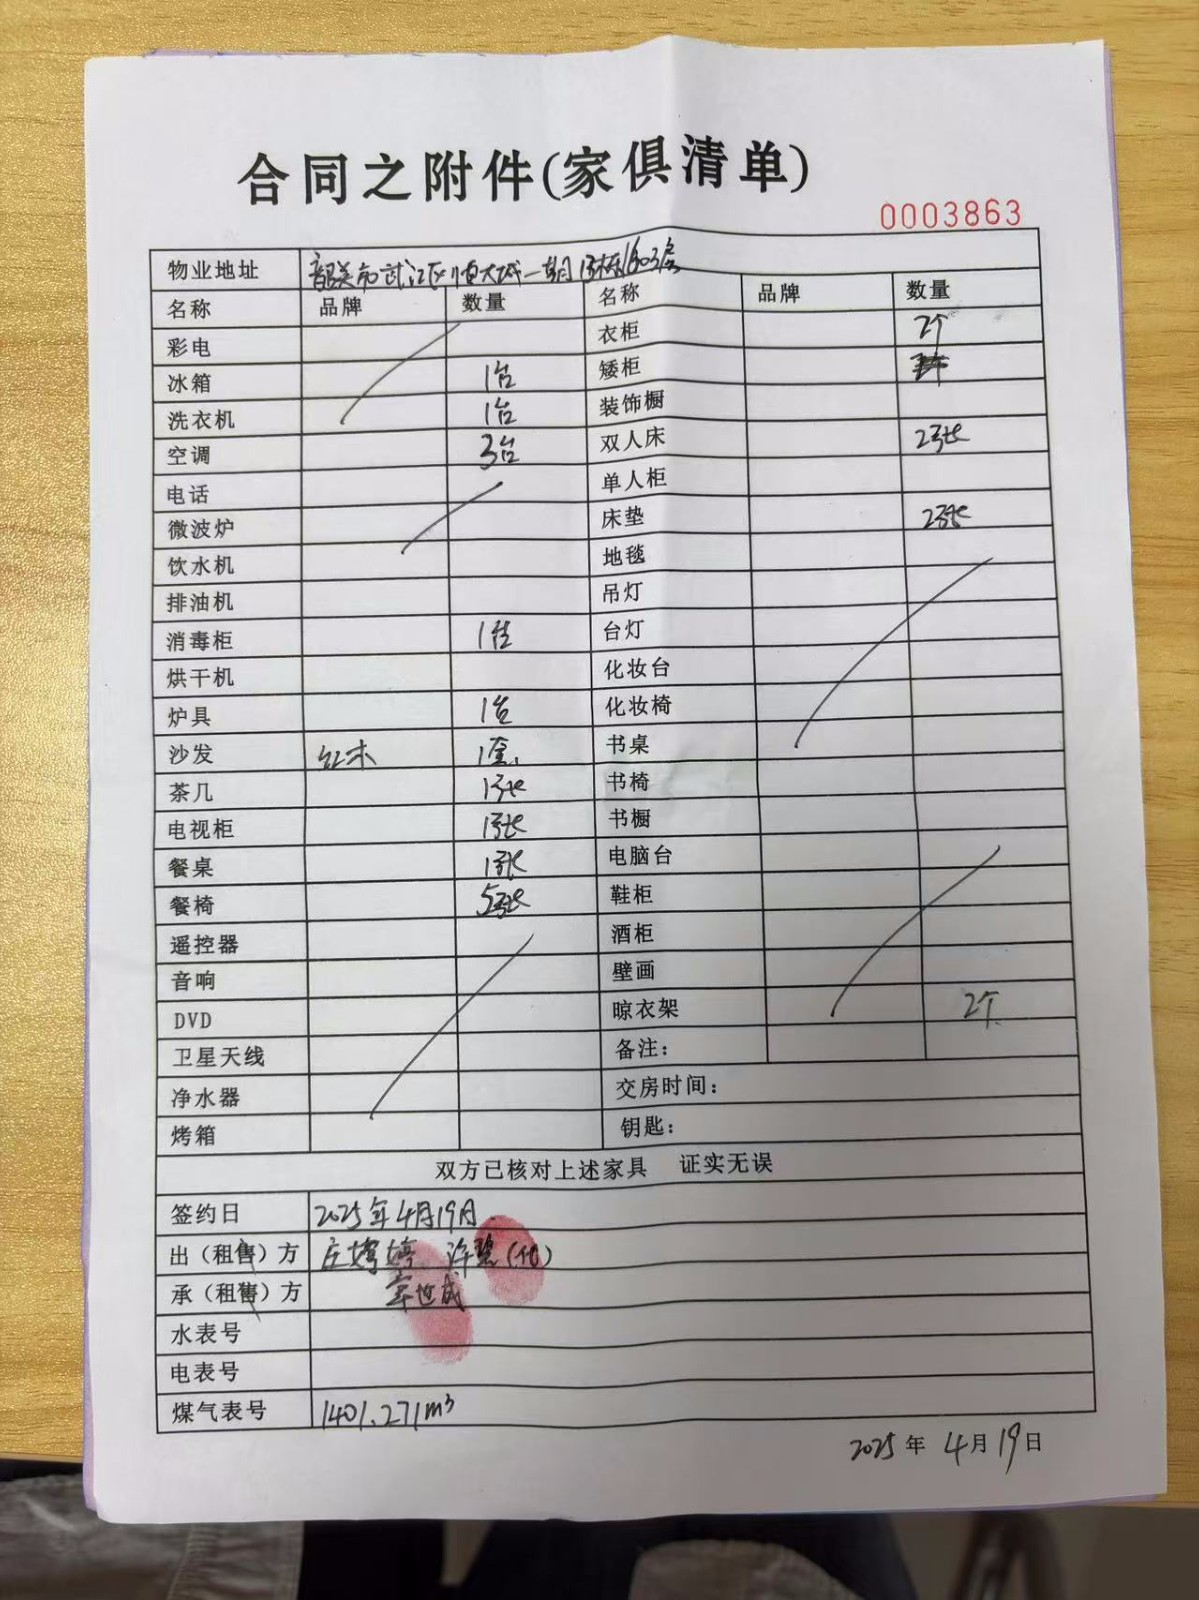 合同之附件(家俱清单)
0003863
物业地址 韶关市武江区恒大城一期13栋1603房
名称 品牌 数量 名称 品牌 数量
彩电 衣柜 2个
冰箱 1台 矮柜
洗衣机 1台 装饰橱
空调 3台 双人床 2张
电话 单人柜
微波炉 床垫 2张
饮水机 地毯
排油机 吊灯
消毒柜 1台 台灯
烘干机 化妆台
炉具 1台 化妆椅
沙发 红木 1套 书桌
茶几 1张 书椅
电视柜 1张 书橱
餐桌 1张 电脑台
餐椅 5张 鞋柜
遥控器 酒柜
音响 壁画
DVD 晾衣架 2个
卫星天线 备注：
净水器 交房时间：
烤箱 钥匙：
双方已核对上述家具 证实无误
签约日 2025年4月19日
出（租售）方 庄婷婷 (代)
承（租售）方 世成
水表号
电表号
煤气表号 1401.271m³
2025年4月19日